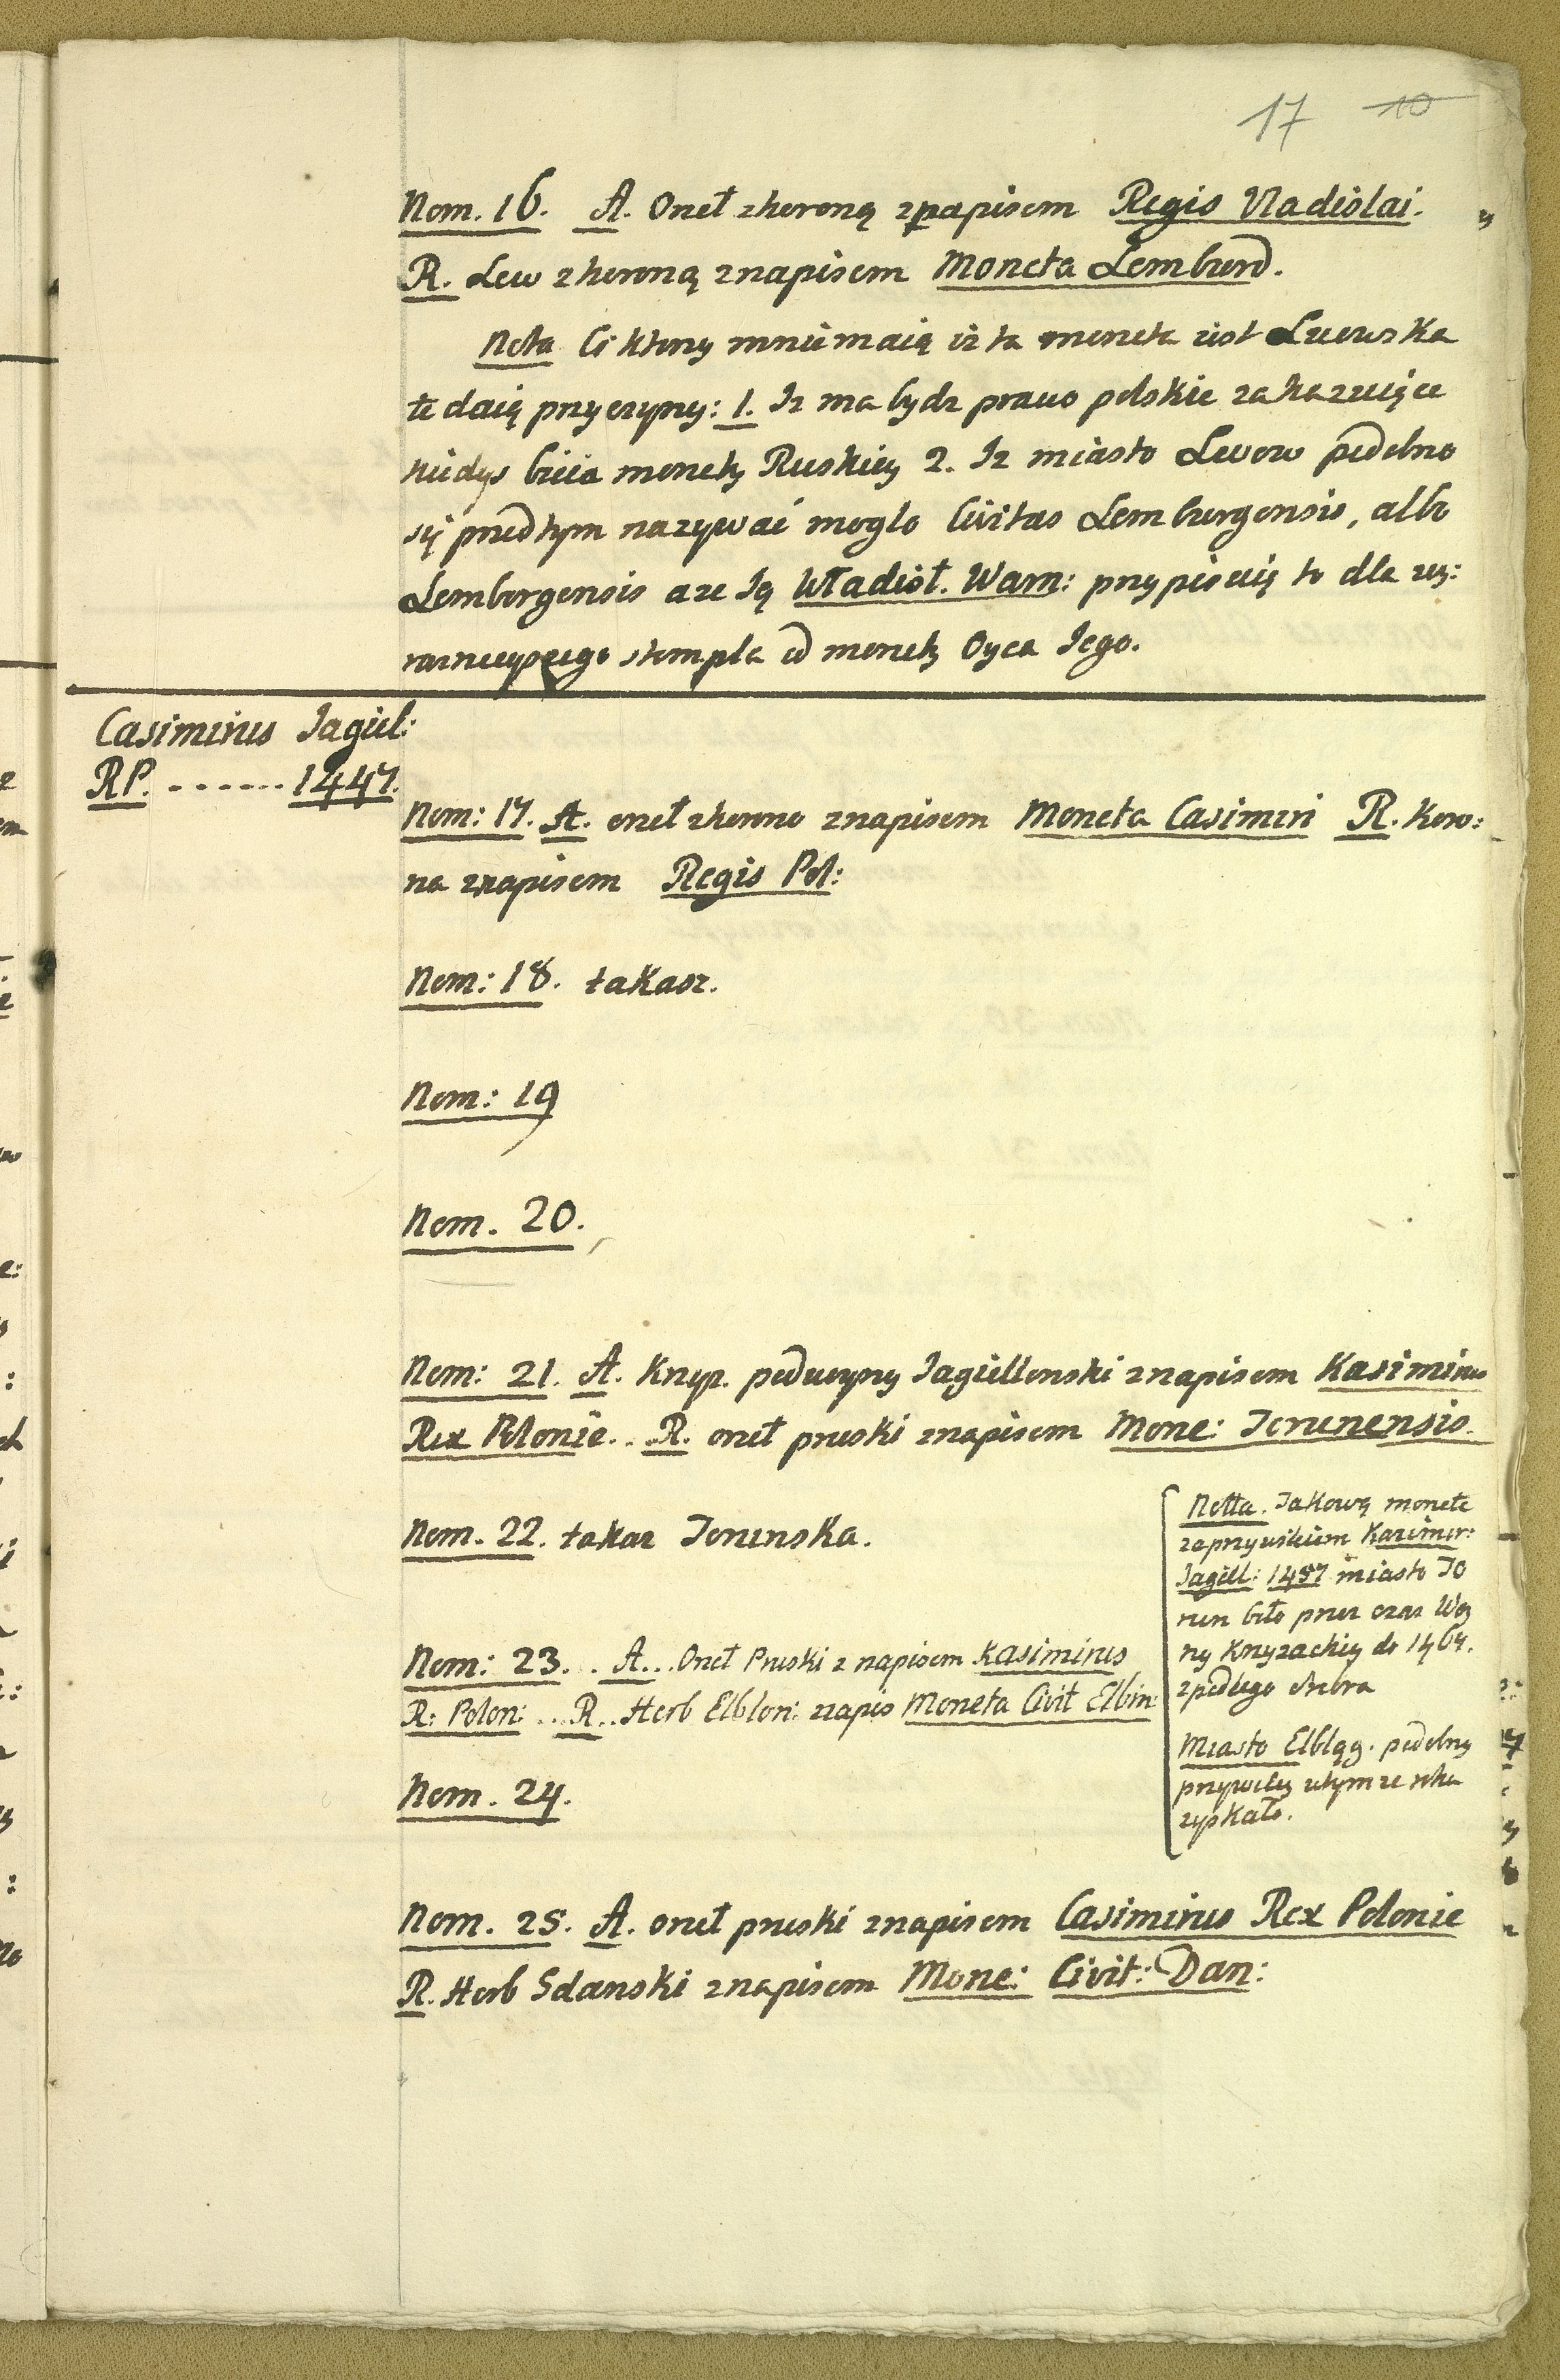 17 10
Nom. 16. A. Orzeł zkoroną znapisem Regis Vladislai.
R. Lew zkoroną znapisem Moneta Lemburd.
Nota Ci ktorzy mniimaią iż ta moneta iest Lwowska
te daią przyczyny: 1. Iż ma bydz prawo polskie zakazuiące
kiedys bicia monety Ruskiey 2. Iż miasto Lwow podobno
się przedtym nazywać mogło Civitas Lemburgensis, albo
Lemborgensis aże Ią Władisł. Warn: przypisuią to dla wy:
raznieyszego stempla od monety Oyca Iego.
Casimirus Jagiel:
RP. ....... 1447.
Nom: 17. A. orzeł zkorono znapisem Moneta Casimiri R. Koro:
na znapisem Regis Pol:
Nom: 18. takasz.
Nom: 19
Nom. 20.
Nom: 21. A. Krzyż. podwoyny Jagiellonski znapisem Kasimirus
Rex Polonie.. R. orzeł pruski znapisem Mone: Torunensis.
Nom. 22. takaz Torunska.
Nom: 23... A... Orzeł Pruski z napisem Kasimirus
R: Polon: ... R... Herb Elblon: napis Moneta Civit Elbin:
Nom. 24.
Notta. Takową monete
zaprzywileiem Kazimier:
Jagiell: 1457 miasto To
run biło przez czas Woy
ny Krzyzackiey do 1464.
zpodłego srebra
Miasto Elbląg. podobny
przywiley wtymze roku
zyskało.
Nom. 25. A. orzeł pruski znapisem Casimirus Rex Polonie
R. Herb Gdanski znapisem Mone: Civit: Dan: